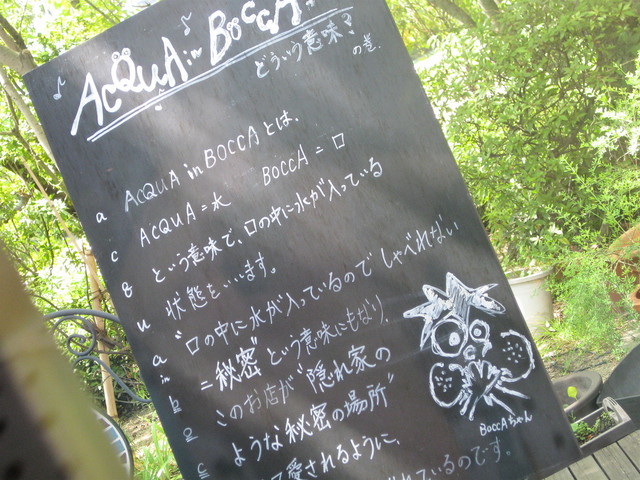 ACQUA in BOCCA!
どういう意味?
の巻.
ACQUA in BOCCA とは、
ACQUA = 水 BOCCA = 口
という意味で、口の中に水が入っている
状態をいいます。
"口の中に水が入っているので しゃべれない
= 秘密" という意味にもなり、
このお店が "隠れ家の
ような秘密の場所"
て愛されるように、
れているのです。
BOCCAちゃん
a
c
q
u
a
in
b
o
c